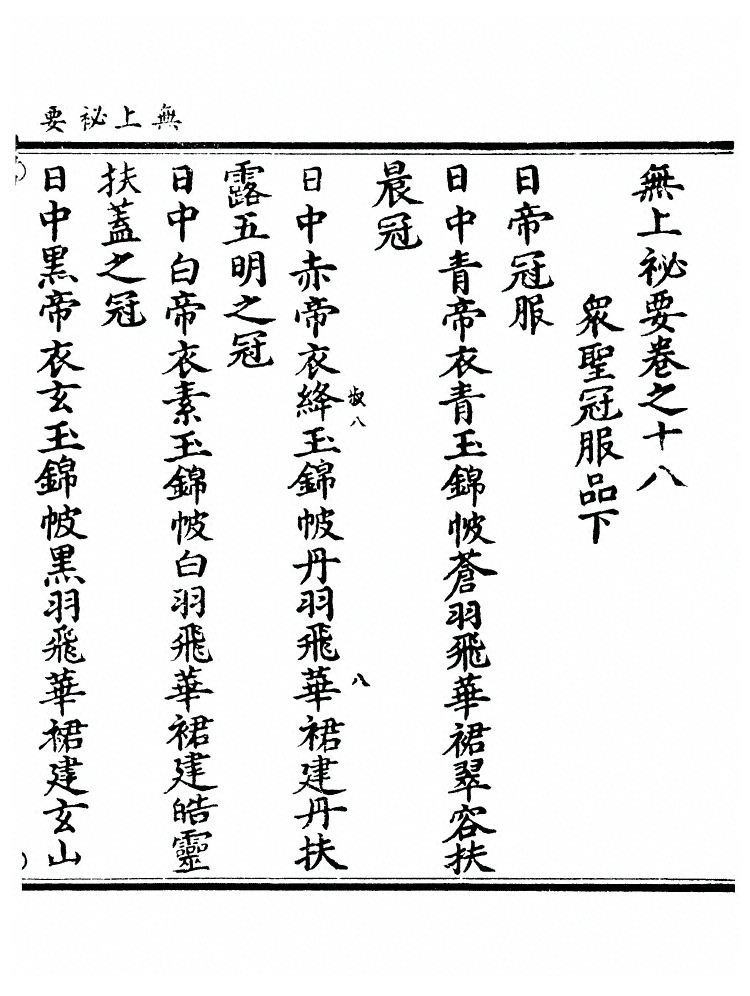 無上祕要
無上祕要卷之十八
衆聖冠服品下
日帝冠服
日中青帝衣青玉錦帔蒼羽飛華裙翠容扶
晨冠
日中赤帝衣絳玉錦帔丹羽飛華裙建丹扶
椒八
八
露五明之冠
日中白帝衣素玉錦帔白羽飛華裙建皓靈
扶蓋之冠
日中黑帝衣玄玉錦帔黑羽飛華裙建玄山